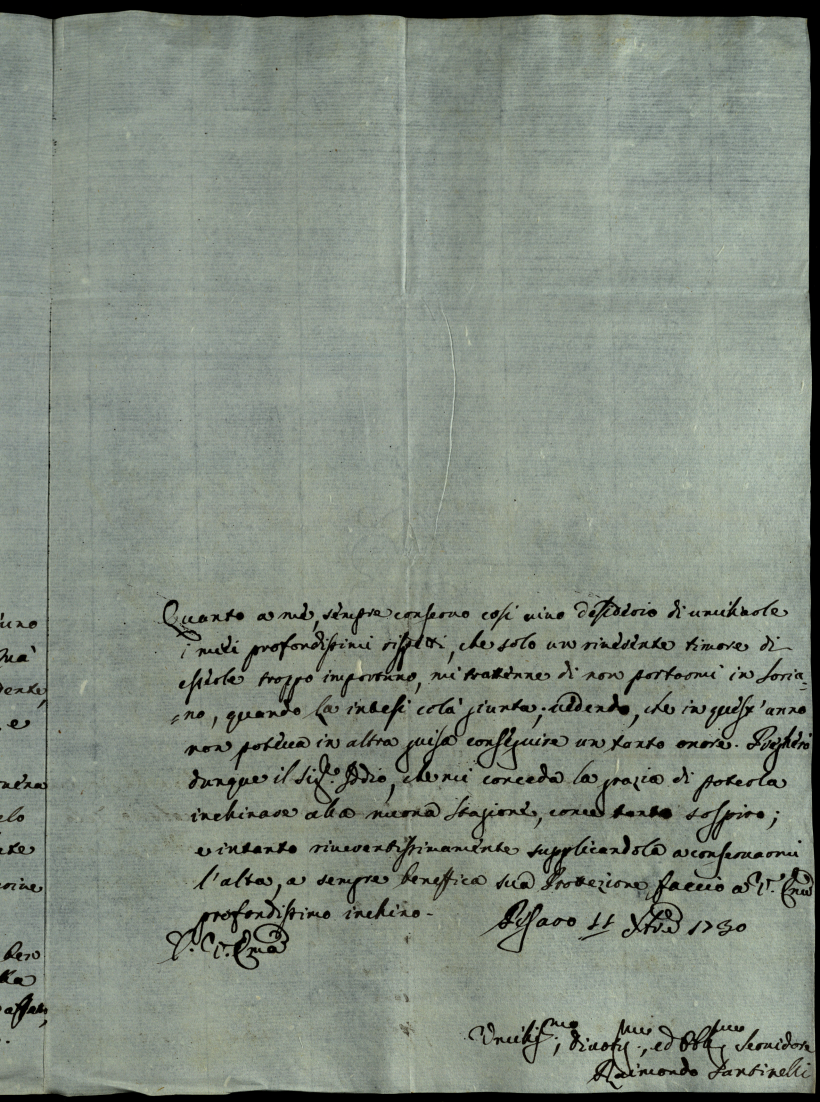 Quanto a mè, sempre conseruo così uiuo desiderio di umiliarle
i miei profondissimi rispetti, che solo un riuerente timore di
esserle troppo importuno, mi trattenne di non portarmi in Soria=
=no, quando la intesi colà giunta; uedendo, che in quest'anno
non poteua in altra guisa conseguire un tanto onore. Pregherò
dunque il Sig.r Iddio, che mi conceda la grazia di poterla
inchinare alla nuoua Stagione, come tanto sospiro;
e intanto riuerentissimamente supplicandola a conseruarmi
l'alta, e sempre beneffica sua Protezione, faccio a V. Em̃a
profondissimo inchino.
Pesaro 11 Xbre 1730
D. V. Em̃a
Umiliss.mo, diuotiss.mo, ed Obb.mo Seruidore
Raimondo Santinelli
uno
dente,
e
elo
bero